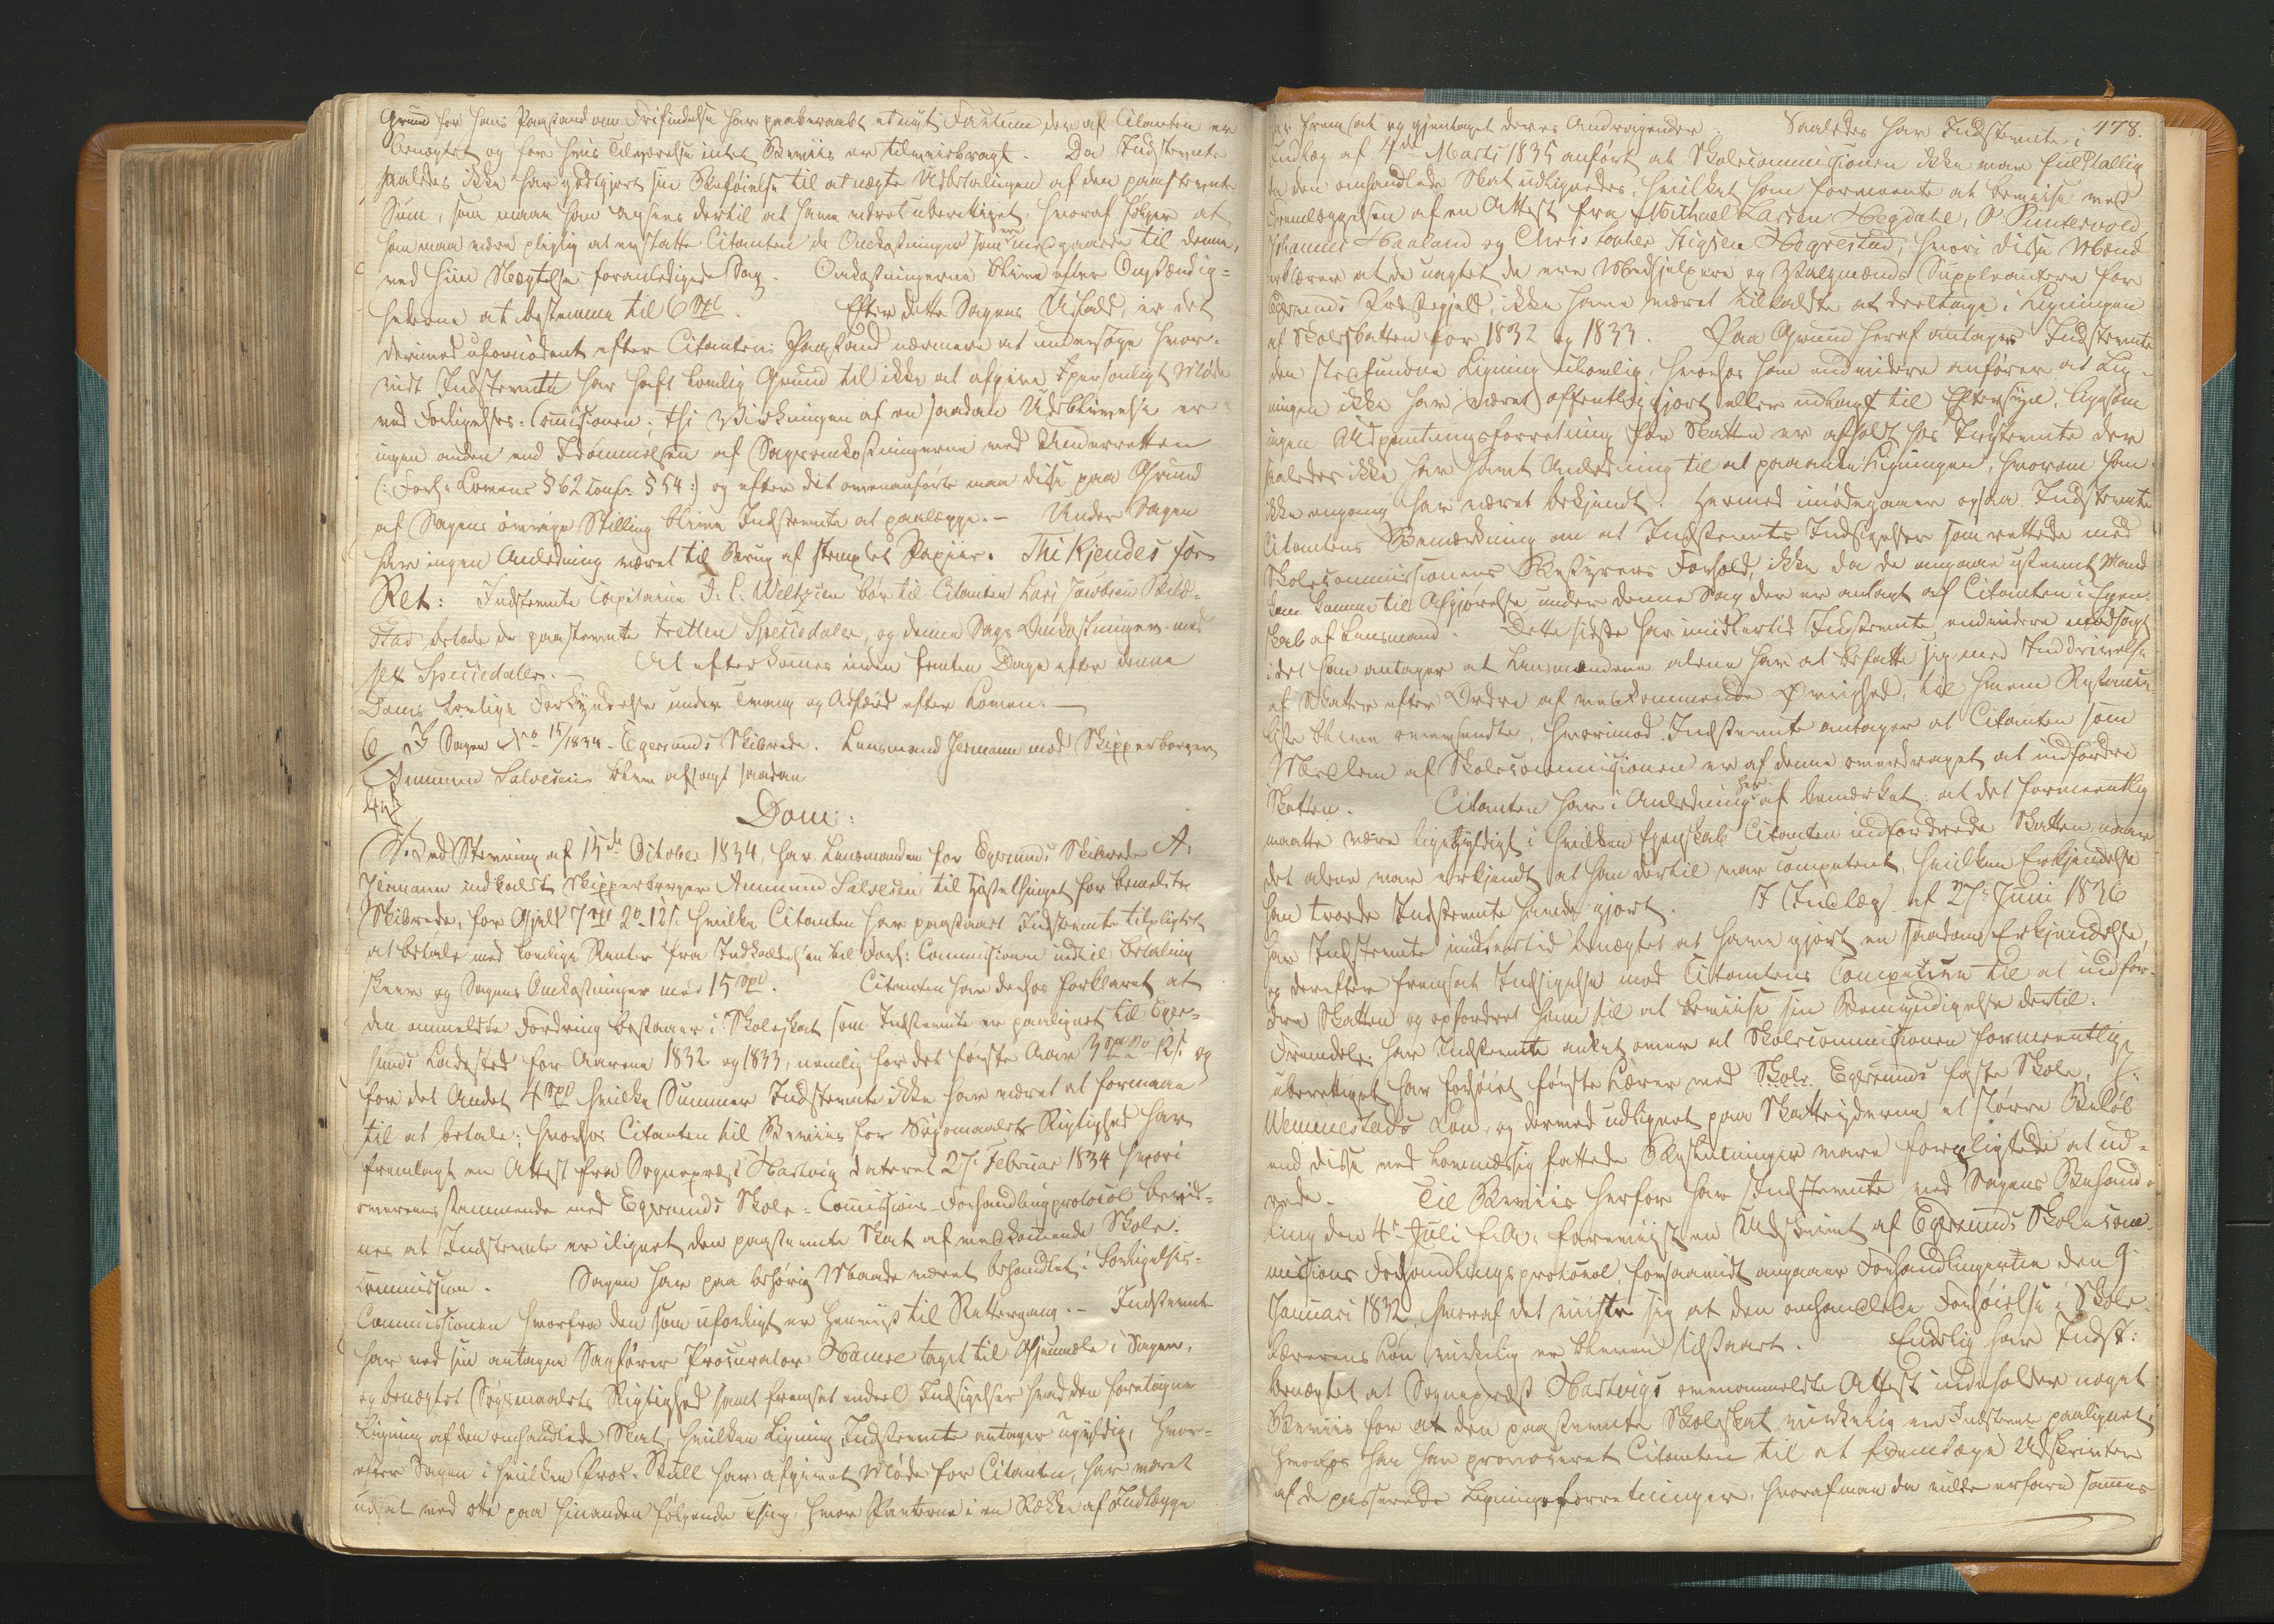 Grund for hans Paastand om Frifindelse har paaberaabt et nyt Factum der af Citanten er
benægtet og for hvis Tilværelse intet Beviis er tilveiebragt. Da Indstevnte
saaledes ikke har godtgjort sin Beføielse til at nægte Udbetalingen af den paastevnte
Sum, saa maae han agsees dertil at have været uberettiget, hvoraf følger at
han maa være pligtig at erstatte Citanten de Omkostninger som ere medgaaede til denne,
ved hiin Nægtelse foranledigede Sag. Omkostningerne blive efter Omstændig-
hederne at bestemme til 6 Spd. Efter dette Sagens Udfald, er det
derimod ufornødent efter Citantens Paastand nærmere at undersøge hvor-
vidt Indstevnte har havt lovlig Grund til ikke at afgive personligt Møde
ved Forligelses-Comissionen; thi Virkningen af en saadan Udeblivelse er
ingen anden end Idømmelsen af Sagsomkostningerne ved Underretten
(: Forl: Lovens § 62 conf: § 54 :) og efter det ovenanførte maa disse paa Grund
af Sagens øvrige Stilling blive Indstevnte at paalægge. — Under Sagen
har ingen Anledning været til Brug af stemplet Papiir. Thi Kjendes for
Ret: Indstevnte Capitaine F. C. Weltzien bør til Citanten Lars Jacobsen Skad-
stad betale de paastevnte tretten Speciedaler, og denne Sags Omkostninger med
sex Speciedaler. — At efterkommes inden femten Dage efter denne
Doms lovlige Forkyndelse under Tvang og Adfærd efter Loven. —
6/ I Sagen No 15/1834. Egersunds Skibrede. Lensmand Jermann mod Skipperborger
Ammund Salvesen blev afsagt saadan
Dom:
Ved Stevning af 15de October 1834, har Lensmanden for Egersunds Skibrede A.
Jermann indkaldt Skipperborger Ammund Salvesen til Høstethinget for bemeldte
Skibrede, for Gjeld 7 Spd 2 o 12 s. hvilke Citanten har paastaaet Indstevnte tilpligtet
at betale med lovlige Renter fra Indkaldelsen til Forl: Commissionen indtil Betaling
skeer og Sagens Omkostninger med 15 Spd. Citanten har derhos forklaret at
den ommeldte Fordring bestaaer i Skoleskat som Indstevnte er paalignet til Eger-
sunds Ladested for Aarene 1832 og 1833, nemlig for det første Aar 3 Spd 2 o 12 s. og
for det Andet 4 Spd hvilke Summer Indstevnte ikke har været at formaae
til at betale; hvorhos Citanten til Beviis for Søgsmaalets Rigtighed har
fremlagt en Attest fra Sognepræst Hartvig dateret 27. Februar 1834 hvori
overeensstemmende med Egersunds Skole-Comissions-Forhandlingsprotocol bevid-
nes at Indstevnte er ilignet den paastevnte Skat af vedkommende Skole-
commission. Sagen har paa behørig Maade været behandlet i Forligelses-
Commissionen hvorfra den som uforligt er henviist til Rettergang. — Indstevnte
har ved sin antagne Sagfører Procurator Hamre taget til Gjenmæle i Sagen,
og benægtet Søgsmaalets Rigtighed samt fremsat endeel Indsigelser mod den foretagne
Ligning af den omhandlede Skat, hvilken Ligning Indstevnte antager ugyldig, hvor-
efter Sagen i hvilken Proc. Skull har afgivet Møde for Citanten, har været
udsat ved otte paa hinanden følgende Thing, hvor Parterne i en Række af Indlægge
478.
har fremsat og gjentaget deres Andragender. Saaledes har Indstevnte i
Indlæg af 4de Marts 1835 anført at Skolecommissionen ikke var fuldtallig
da den omhandlede Skat udlignedes, hvilket han formeente at bevise ved
Fremlæggelsen af en Attest fra Michael Larsen Hegdahl, P. Puntervold,
Johannes Haaland og Christopher Stigsen Hegrestad, hvori disse Mænd
erklærer at de uagtet de ere Medhjelpere og Valgmænds Suppleantere for
Egersunds Præstegjeld, ikke have været tilkaldte at deeltage i Ligningen
af Skoleskatten for 1832 og 1833. Paa Grund heraf antager Indstevnte
den stedfundne Ligning ulovlig, hvorhos han endvidere anfører at Lig-
ningen ikke har været offentliggjort eller udlagt til Eftersyn, ligesom
ingen Udpantningsforretning for Skatten er afholdt hos Indstevnte der
saaledes ikke har havt Anledning til at paaanke Ligningen, hvorom han
ikke engang har været bekjendt. Hermed imødegaaer ogsaa Indstevnte
Citantens Bemærkning om at Indstevntes Indsigelser som rettede mod
Skolecommissionens Bestyrers Forhold, ikke da de angaae ustevnt Mand
kan komme til Afgjørelse under denne Sag der er anlagt af Citanten i Egen-
skab af Lensmand. Dette sidste har imidlertid Indstevnte endvidere modsagt
idet han antager at Lensmændene alene har at befatte sig med Inddrivelse
af Skatter efter Ordre af vedkommende Øvrighed, til hvem Restance
liste blive oversendte, hvorimod Indstevnte antager at Citanten som
Medlem af Skolecommissionen er af denne overdraget at indfordre
Skatten. Citanten har i Anledning heraf bemærket at det formeentlig
maatte være ligegyldigt i hvilken Egenskab Citanten indfordrede Skatten, naar
det alene var erkjendt at han dertil var competent, hvilken Erkjendelse
han troede Indstevnte havde gjort. I Indlæg af 27. Juni 1836
har Indstevnte imidlertid benægtet at have gjort en saadan Erkjendelse,
og derefter fremsat Indsigelse mod Citantens Competence til at indfor-
dre Skatten og opfordret ham til at bevise sin Bemyndigelse dertil.
Fremdeles har Indstevnte anket over at Skolecommissionen formeentlig
uberettiget har forhøiet første Lærer ved Skole Egersunds faste Skole,
Wemmestads Løn, og derved udlignet paa Skatteyderne et større Beløb
end disse ved lovmæssig fattede Bestemninger vare forpligtede at ud-
rede. Til Beviis herfor har Indstevnte ved Sagens Behand-
ling den 4. Juli f. A. foreviist en Udskrivt af Egersunds Skolecom-
missions Forhandlingsprotocol, forsaavidt angaaer Forhandlingerne den 9.
Januari 1832, hvoraf det viiste sig at den omhandlede Forhøielse i Skole-
lærerens Løn virkelig er bleven tilstaaet. Endelig har Indst:
benægtet at Sognepræst Hartvigs ovenommeldte Attest indeholder noget
Beviis for at den paastevnte Skoleskat virkelig er Indstevnte paalignet,
hvorhos han har provoceret Citanten til at fremlægge Udskrivter
af de passerede Ligningsforretninger, hvoraf man da vilde erfare sammes